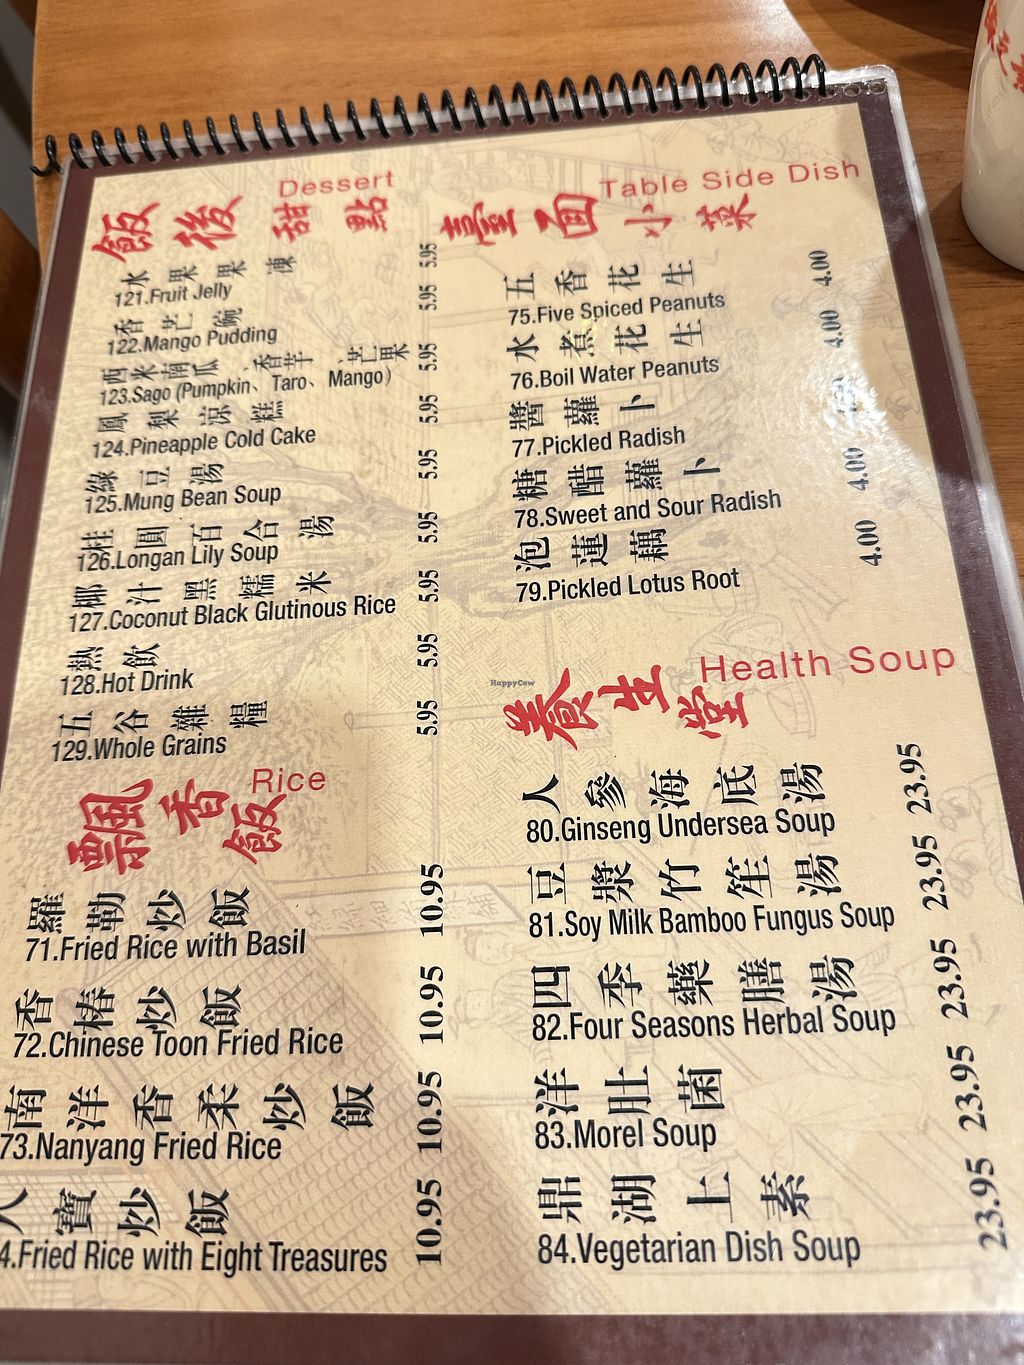 Dessert
飯後甜點
水果果凍 5.95
121.Fruit Jelly
香芒碗 5.95
122.Mango Pudding
西米南瓜、香芋、芒果 5.95
123.Sago (Pumpkin、Taro、Mango)
鳳梨涼糕 5.95
124.Pineapple Cold Cake
綠豆湯 5.95
125.Mung Bean Soup
桂圓百合湯 5.95
126.Longan Lily Soup
椰汁黑糯米 5.95
127.Coconut Black Glutinous Rice
熱飲 5.95
128.Hot Drink
五谷雜糧 5.95
129.Whole Grains
Rice
飄香飯
羅勒炒飯 10.95
71.Fried Rice with Basil
香椿炒飯 10.95
72.Chinese Toon Fried Rice
南洋香柔炒飯 10.95
73.Nanyang Fried Rice
八寶炒飯 10.95
4.Fried Rice with Eight Treasures
Table Side Dish
臺面小菜
五香花生 4.00
75.Five Spiced Peanuts
水煮花生 4.00
76.Boil Water Peanuts
醬蘿卜
77.Pickled Radish
糖醋蘿卜 4.00
78.Sweet and Sour Radish
泡蓮藕 4.00
79.Pickled Lotus Root
HappyCow
Health Soup
養生堂
人參海底湯 23.95
80.Ginseng Undersea Soup
豆漿竹笙湯 23.95
81.Soy Milk Bamboo Fungus Soup
四季藥膳湯 23.95
82.Four Seasons Herbal Soup
洋肚菌 23.95
83.Morel Soup
鼎湖上素 23.95
84.Vegetarian Dish Soup